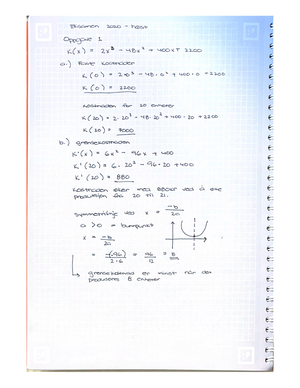 Eksamen 2020 - høst
Oppgave 1
K(x) = 2x³ - 48x² + 400x + 2200
a.) Faste kostnader
K(0) = 2·0³ - 48·0² + 400·0 + 2200
K(0) = 2200
Kostnaden for 20 enheter
K(20) = 2·20³ - 48·20² + 400·20 + 2200
K(20) = 7000
b.) grensekostnader
K'(x) = 6x² - 96x + 400
K'(20) = 6·20² - 96·20 + 400
K'(20) = 880
Kostnaden øker med 880kr ved å øke
produksjon fra 20 til 21.
Symmetrilinje ved x = -b/2a
a > 0 = bunnpunkt
x = -b/2a
= -(-96)/2·6 = 96/12 = 8
grensekostnad er minst når det
produseres 8 enheter